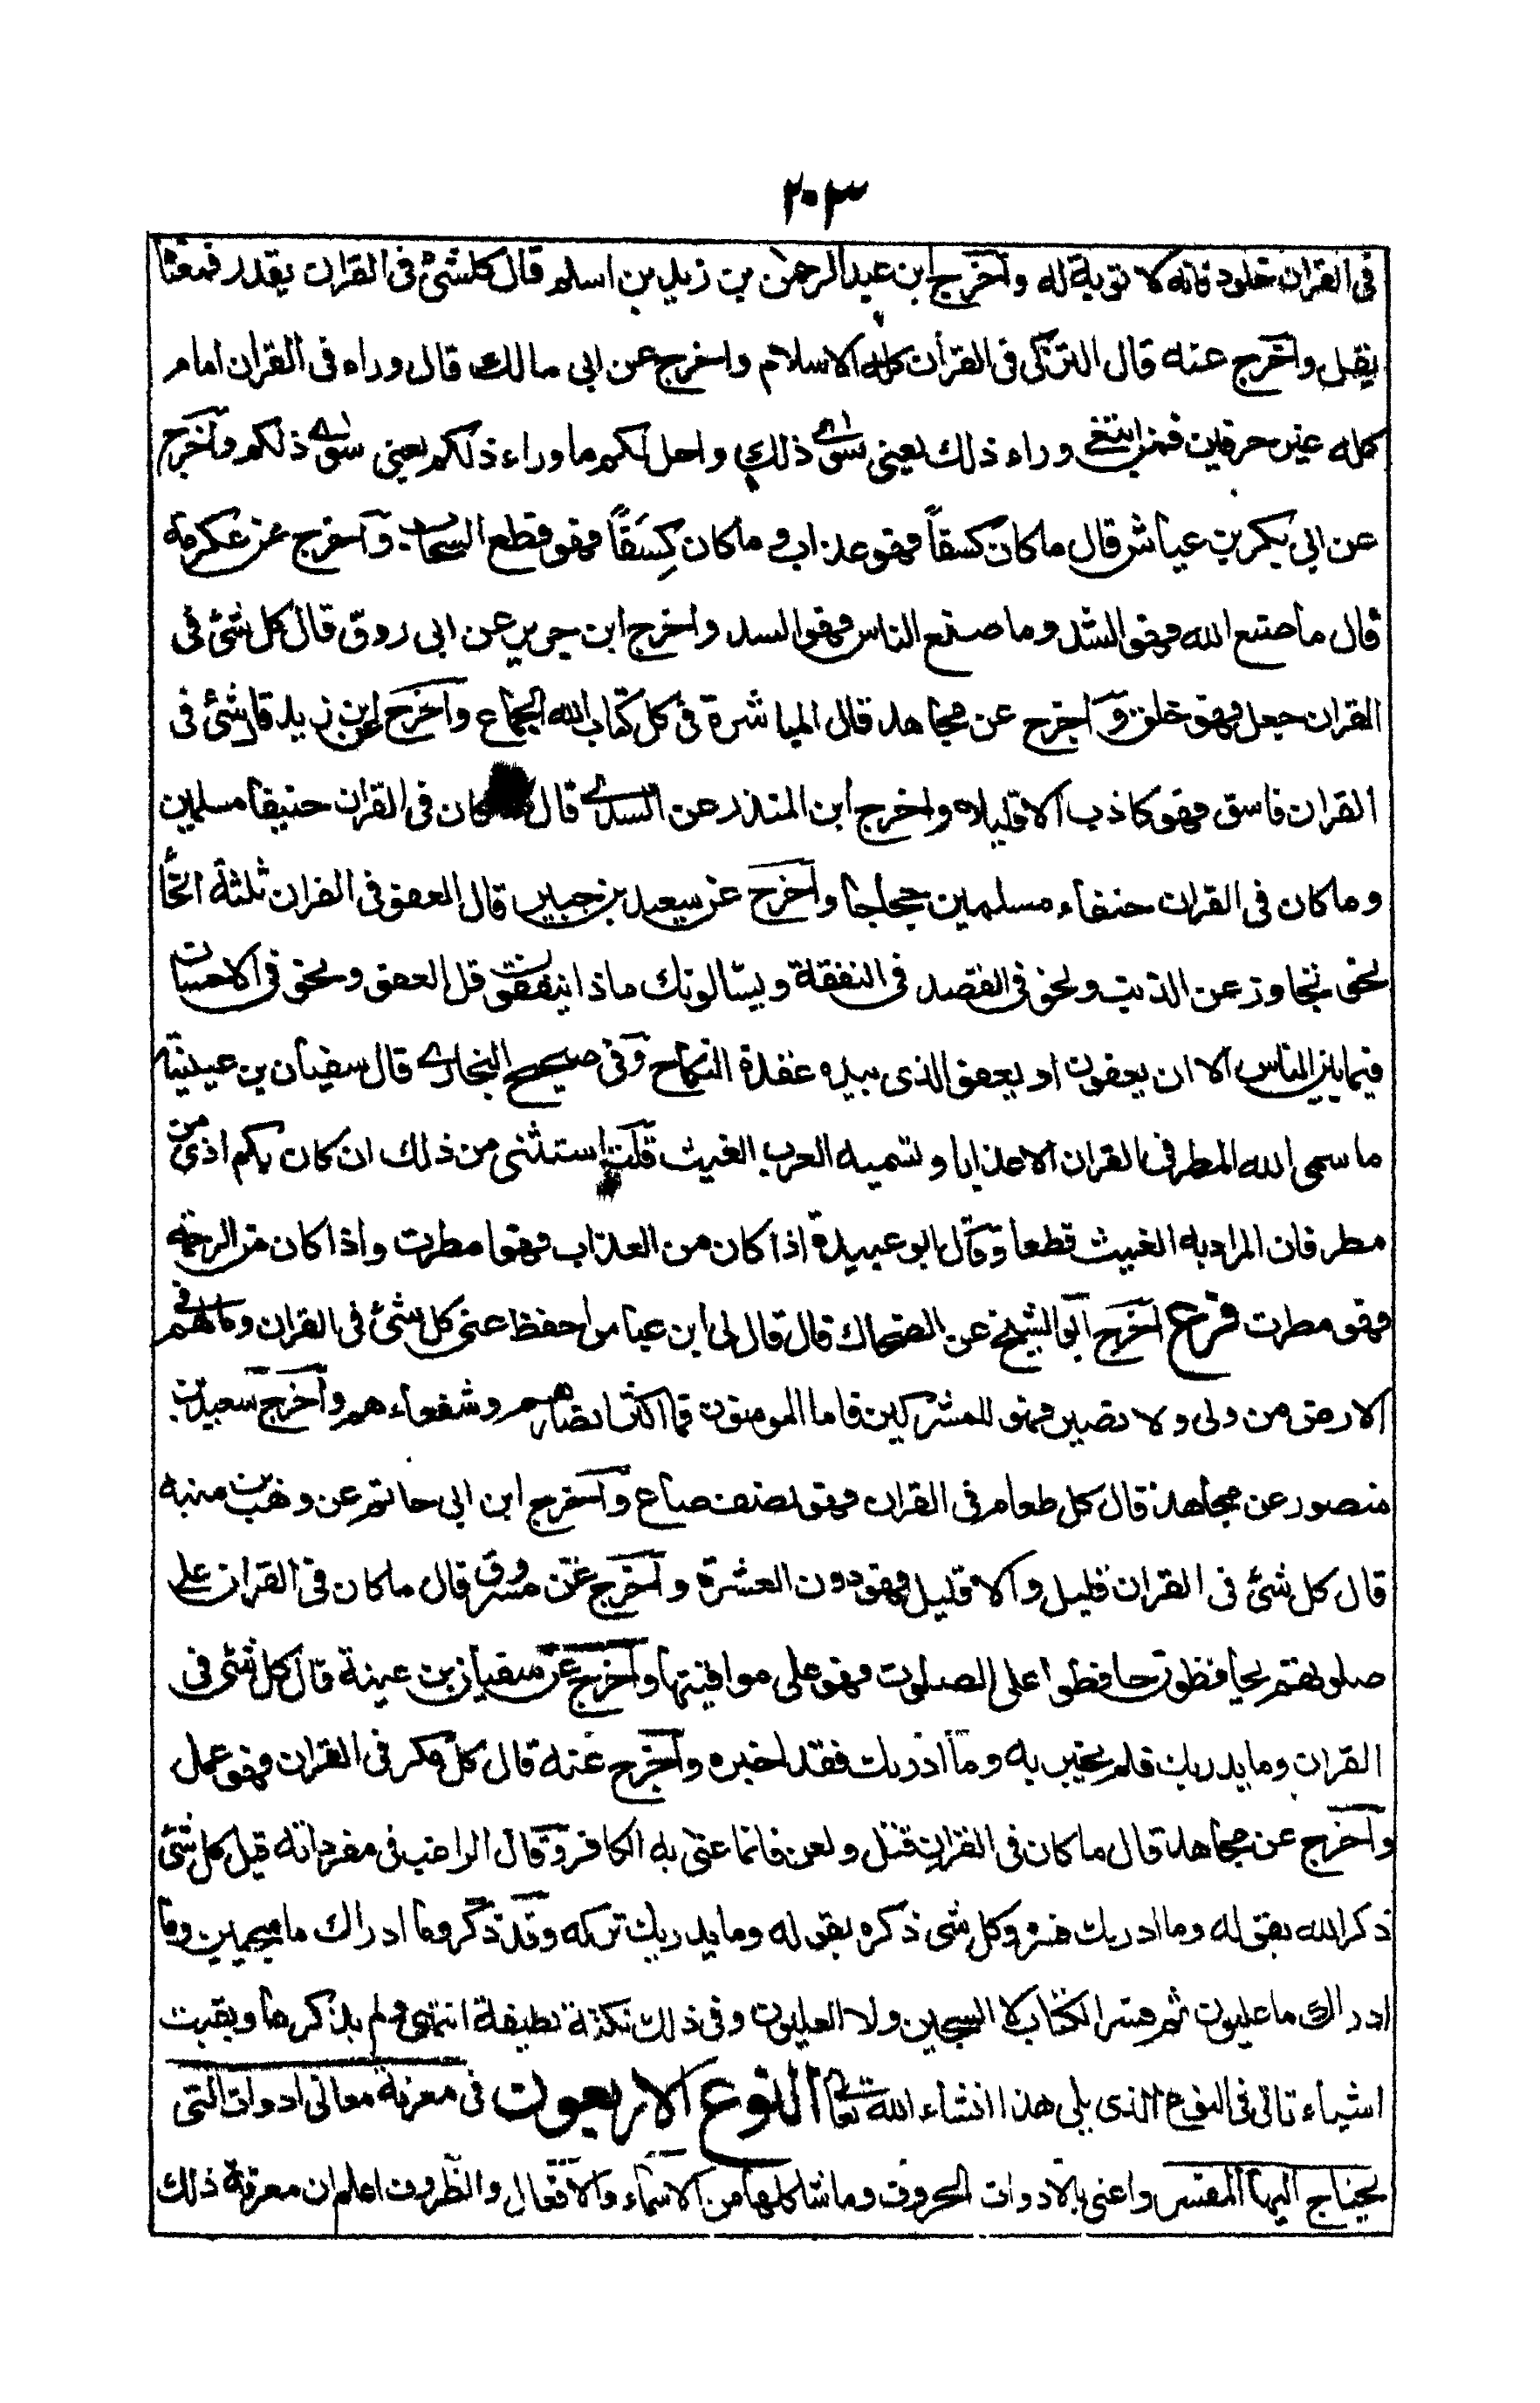 ٢٠٣
فى القران خلود فانه لا توبة له واخرج ابن عبد الرحمن بن زيد بن اسلم قال كلشئ فى القران يقدر فمعناه
يقل واخرج عنه قال التزكى فى القرأن كله الاسلام واخرج عن ابى مالك قال وراء فى القران امام
كله غير حرفين فمن ابتغى وراء ذلك يعنى سوى ذلك واحل لكم ما وراء ذلكم يعنى سوى ذلكم واخرج
عن ابى بكر بن عياش قال ما كان كسفاً فهو عذاب وما كان كِسَفاً فهو قطع السحاب واخرج عن عكرمة
قال ما صنع الله فهو السد وما صنع الناس فهو السد واخرج ابن جرير عن ابى روق قال كل شئ فى
القران جعل فهو خلق واخرج عن مجاهد قال المباشرة فى كل كتاب الله الجماع واخرج عن ابن زيد قال شئ فى
القران فاسق فهو كاذب الا قليلا واخرج ابن المنذر عن السدى قال كان فى القران حنيفا مسلمين
وما كان فى القران حنفاء مسلمين حجاجا واخرج عن سعيد بن جبير قال العفو فى القران ثلثة انحا
نحو تجاوز عن الذنب ونحو فى القصد فى النفقة ويسالونك ماذا ينفقون قل العفو ونحو فى الاحسان
فيما بين الناس الا ان يعفون او يعفو الذى بيده عقدة النكاح وفى صحيح البخارى قال سفيان بن عيينة
ما سمى الله المطر فى القران الا عذابا وتسميه العرب الغيث قلت استثنى من ذلك ان كان بكم اذى من
مطر فان المراد به الغيث قطعا وقال ابو عبيدة اذا كان من العذاب فهو امطرت واذا كان من الرحمة
فهو مطرت فرع اخرج ابو الشيخ عن الضحاك قال قال لى ابن عباس احفظ عنى كل شئ فى القران وما لهم فى
الارض من ولى ولا نصير فهو للمشركين فاما المومنون فما اكثر انصارهم وشفعاءهم واخرج سعيد بن
منصور عن مجاهد قال كل طعام فى القران فهو نصف صاع واخرج ابن ابى حاتم عن وهب بن منبه
قال كل شئ فى القران قليل والا قليل فهو دون العشرة واخرج عن مسروق قال ما كان فى القران على
صلوتهم يحافظون حافظوا على الصلوت فهو على مواقيتها واخرج عن سفيان بن عيينة قال كل شئ فى
القران وما يدريك فلم يخبر به وما ادريك فقد اخبره واخرج عنه قال كل مكر فى القران فهو عمل
واخرج عن مجاهد قال ما كان فى القران قتل ولعن فانما عنى به الكافر وقال الراغب فى مفرداته قيل كل شئ
ذكر الله بقوله وما ادريك فسره وكل شئ ذكره بقوله وما يدريك تركه وقد ذكر وما ادراك ما سجين وما
ادراك ما عليون ثم فسر الكتاب لا السجين ولا العليون وفى ذلك نكتة لطيفة انتهى ولم يذكرها وبقيت
اشياء تاتى فى النوع الذى يلى هذا انشاء الله تعالى النوع الاربعون فى معرفة معانى ادوات التى
يحتاج اليها المفسر واعنى بالادوات الحروف وما شاكلها من الاسماء والافعال والظروف اعلم ان معرفة ذلك